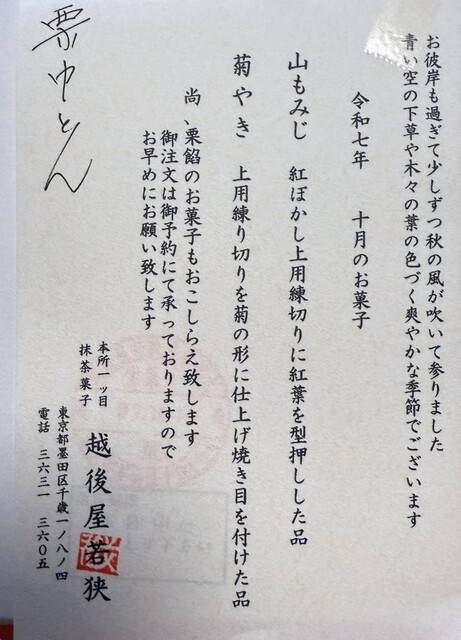 お彼岸も過ぎて少しずつ秋の風が吹いて参りました
青い空の下草や木々の葉の色づく爽やかな季節でございます
令和七年 十月のお菓子
山もみじ 紅ぼかし上用練切りに紅葉を型押しした品
菊やき 上用練り切りを菊の形に仕上げ焼き目を付けた品
尚、栗餡のお菓子もおこしらえ致します
御注文は御予約にて承っておりますので
お早めにお願い致します
本所一ッ目
抹茶菓子
越後屋若狭
東京都墨田区千歳一ノ八ノ四
電話 三六三一 三六〇五
栗中とん